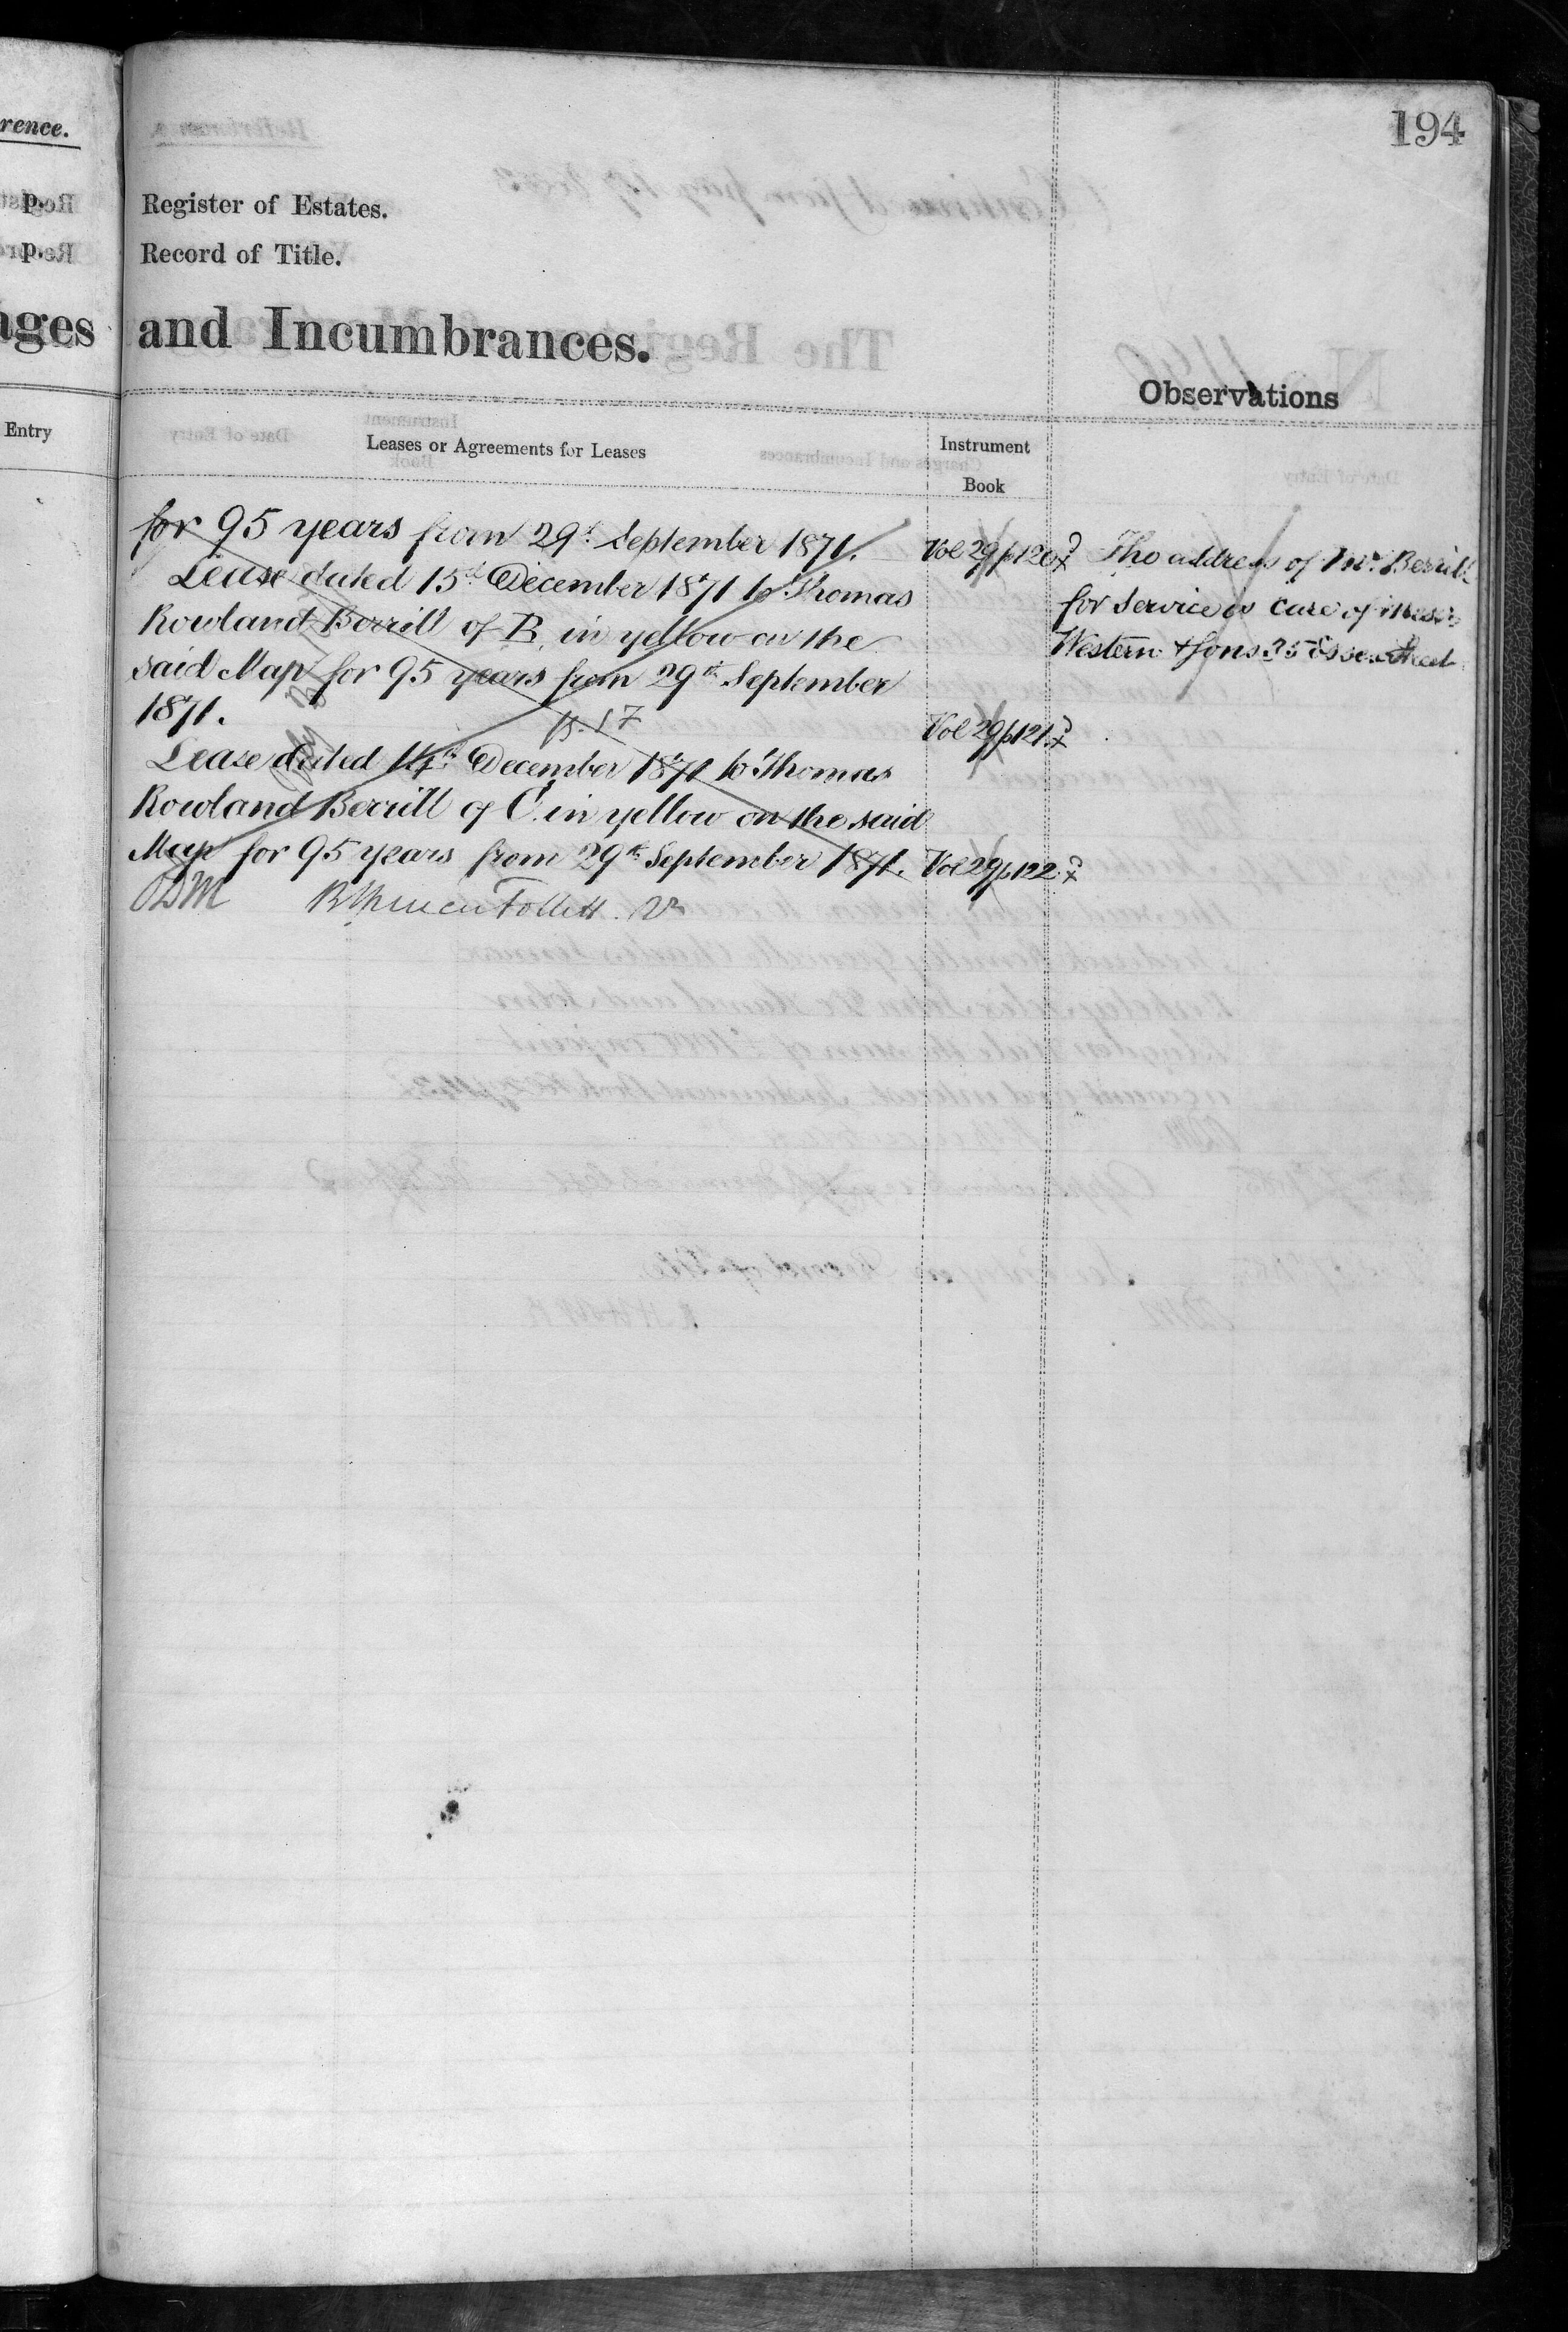 194
rence.
Register of Estates.
Record of Title.
ages and Incumbrances.
Observations
Entry
Leases or Agreements for Leases
Instrument
Book
for 95 years from 29th September 1871. Vol 29 p 120
Lease dated 15th December 1871 to Thomas
Rowland Berrill of B. in yellow on the
said Map for 95 years from 29th September
1871. Vol 29 p 121
p. 17
Lease dated 14th December 1871 to Thomas
Rowland Berrill of C. in yellow on the said
Map for 95 years from 29th September 1871. Vol 29 p 122
Follett
The address of Mr. Berrill
for service is care of Messrs
Western & Sons 35 Essex Street